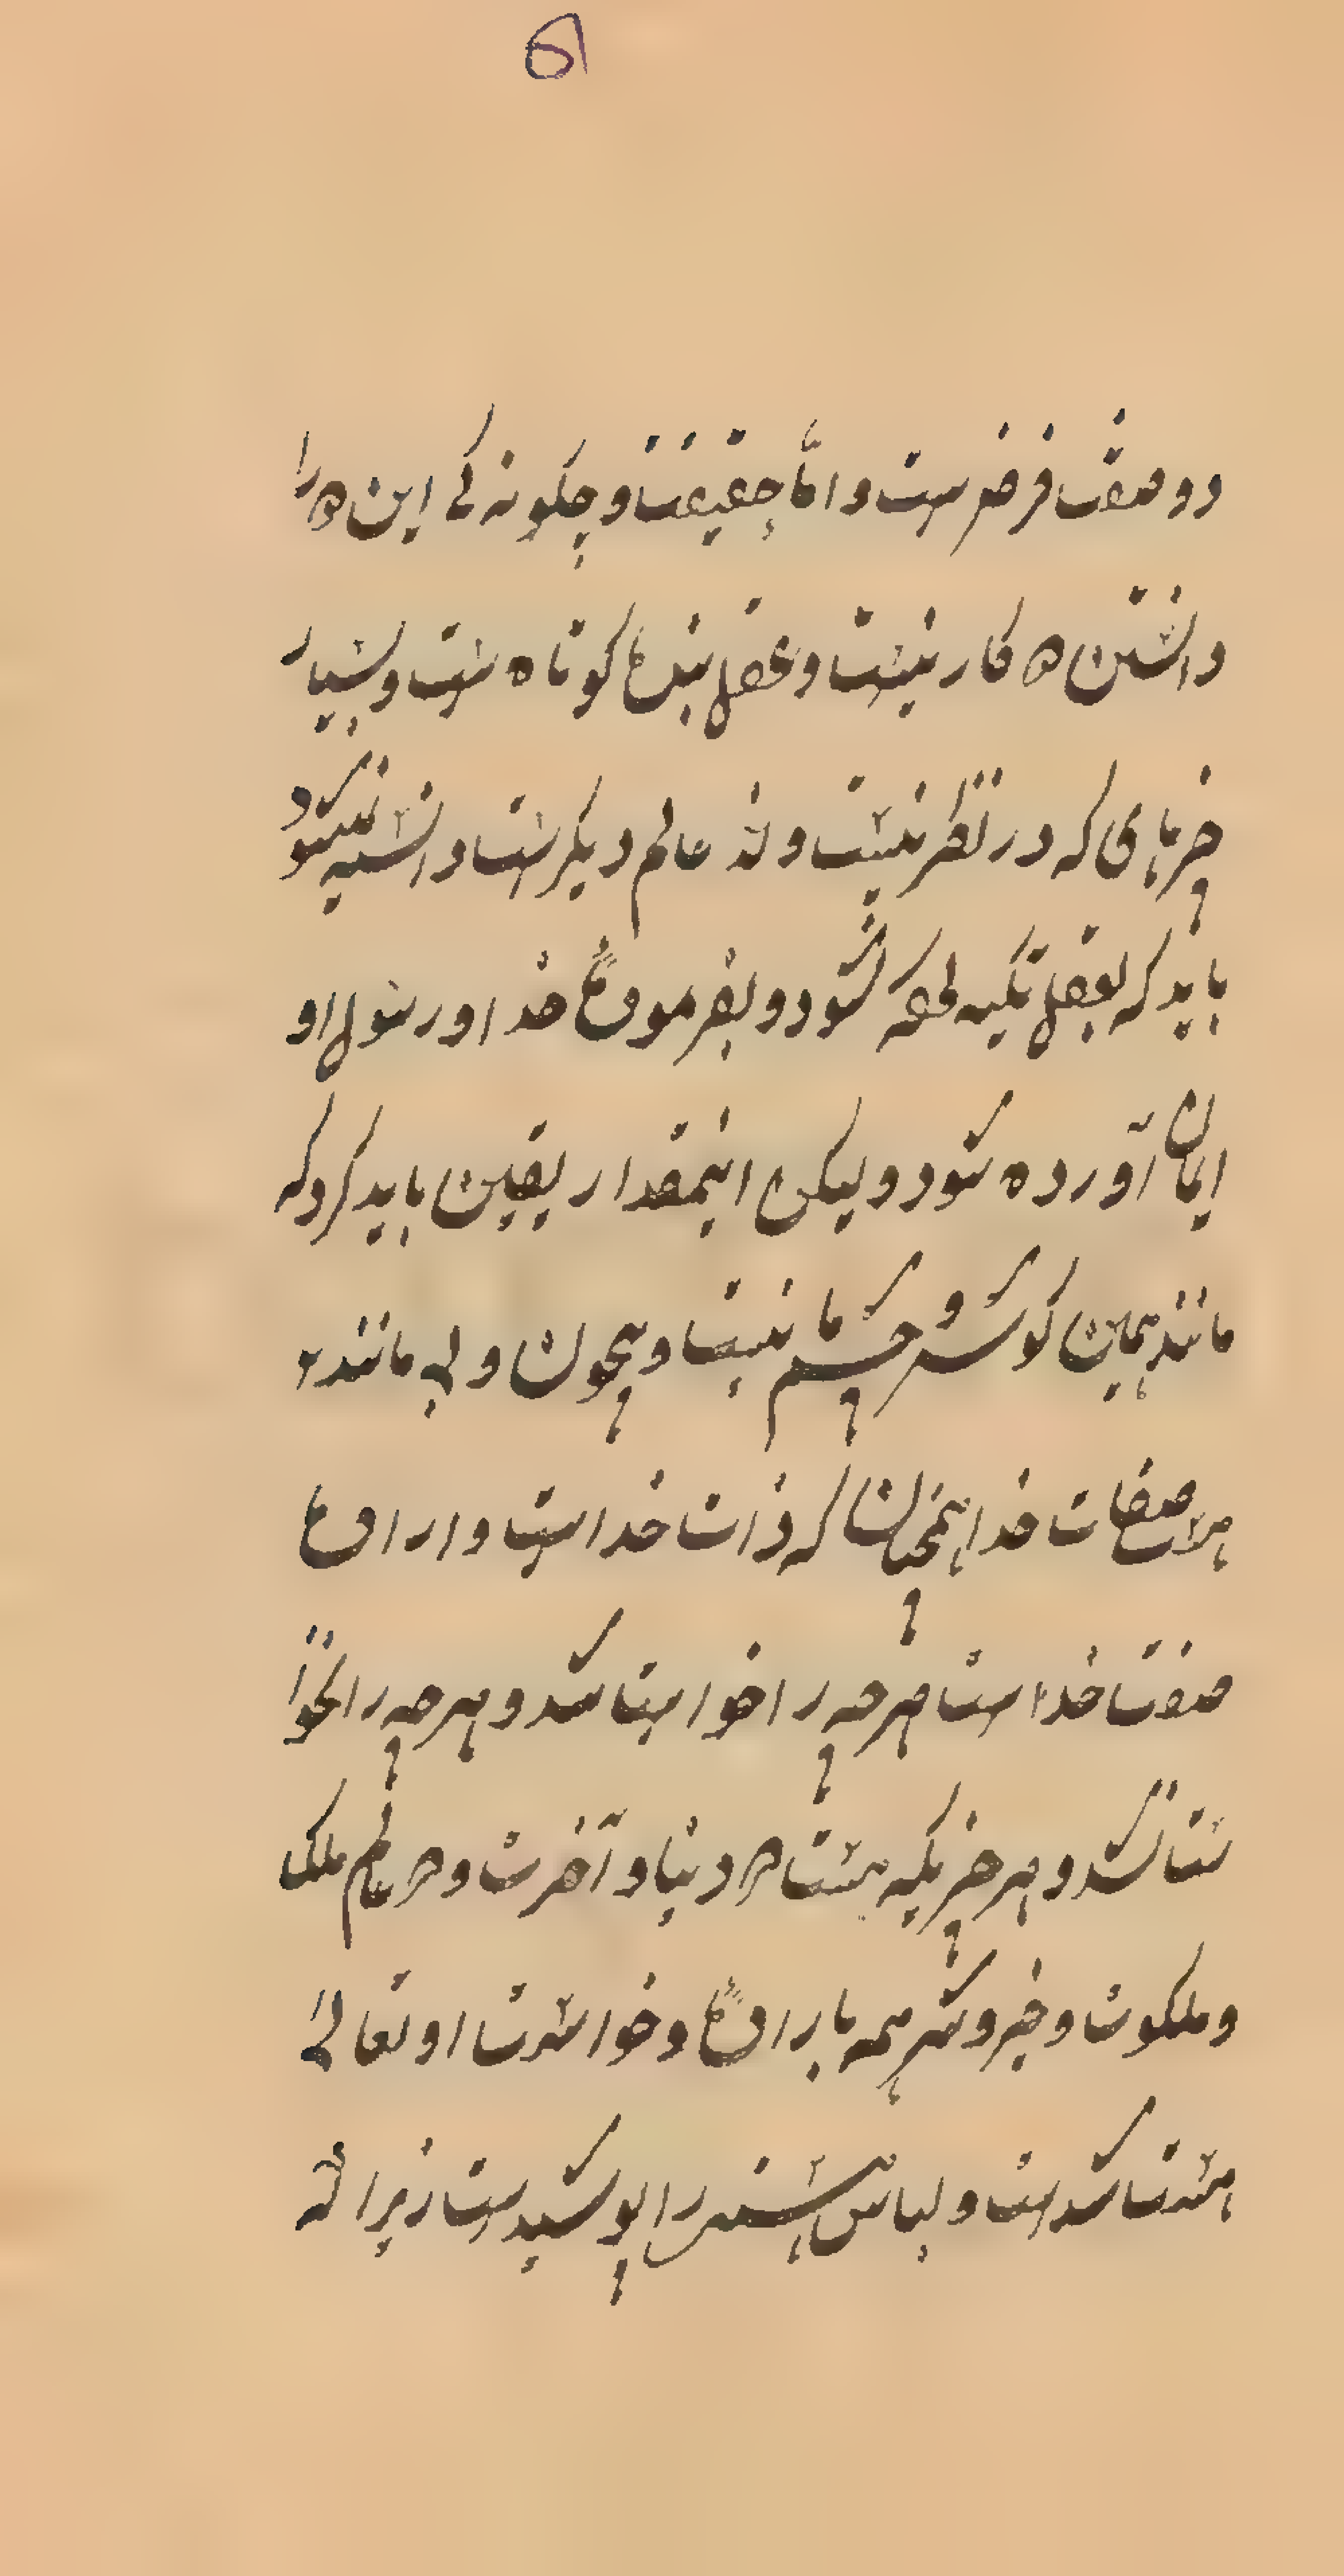 ۵۱
دو صفت فرض ست و اما حقیقت و چکونه کے این هر را
دانستن در کار نیست و عقل بنده کوتاه ست و بسیار
چیزهای که در نظر نیست و نه عالم دیکر ست دانسته نمیشود
باید که بعقل تکیه نکرده شود و بفرموده خدا و رسول او
ایمان آورده شود و لیکن اینمقدار یقین باید کرد که
مانند همین کوش و چشم ما نیست و بیچون و بی مانند
صفات خدا همچنان که ذات خداست و اراده
صفت خداست هرچه را خواست شد و هرچه را نخوا
ست نشد و هر چیزیکه هست در دنیا و آخرت و در عالم ملک
و ملکوت و خیر و شر همه باراده و خواست او تعالی
هست شدست و لباس هستی را پوشیدست زیرا که